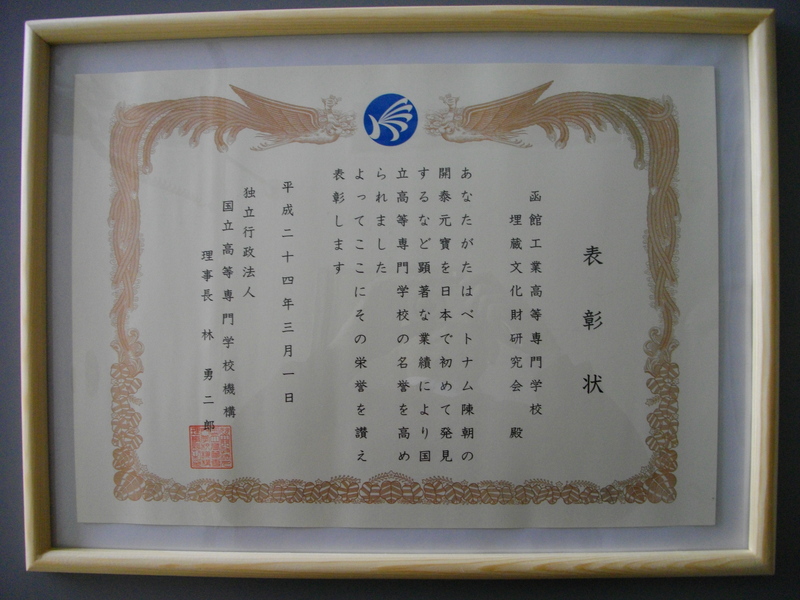 表彰状
函館工業高等専門学校
埋蔵文化財研究会 殿
あなたがたはベトナム陳朝の
開泰元寶を日本で初めて発見
するなど顕著な業績により国
立高等専門学校の名誉を高め
られました
よってここにその栄誉を讃え
表彰します
平成二十四年三月一日
独立行政法人
国立高等専門学校機構
理事長 林 勇二郎